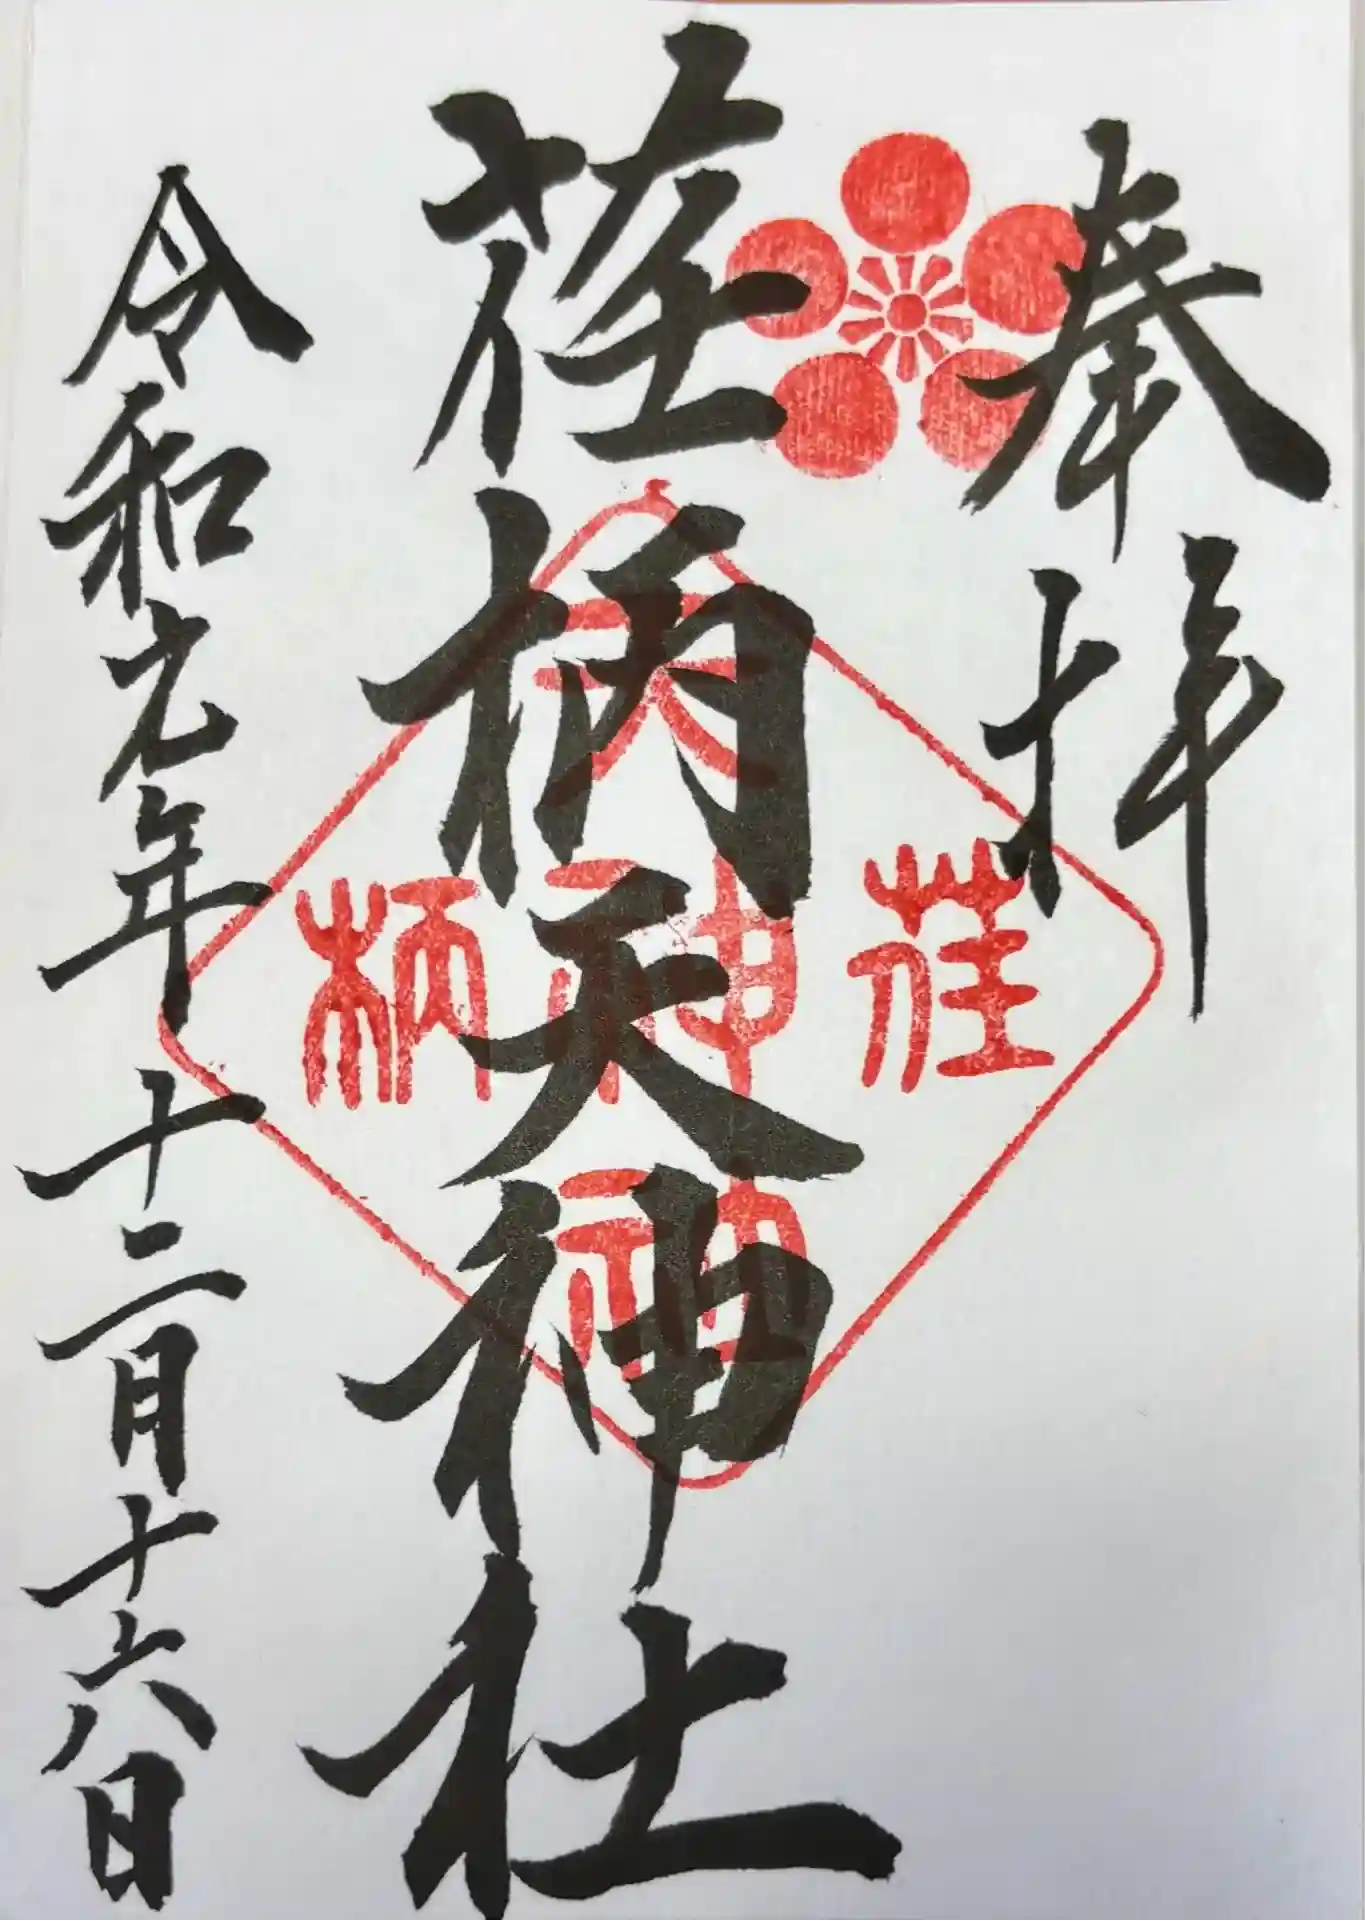 奉拝
荏柄天神社
令和元年十二月十六日
荏
天神神
柄